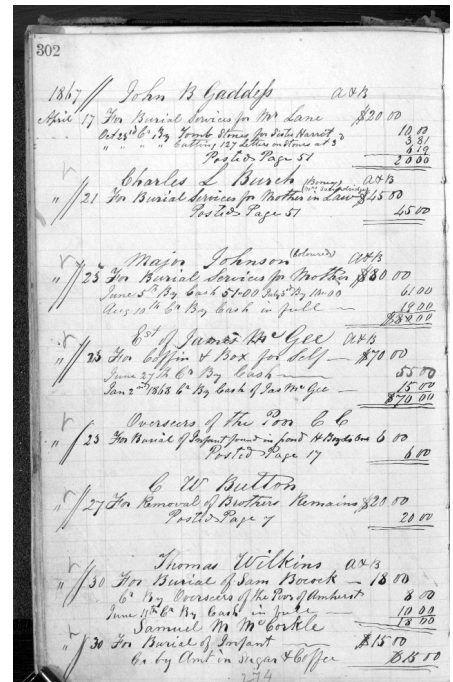 302
1867 // John B Gaddess A&B
April 17 For Burial Services for Mr Lane $20 00
Oct 23rd Cr By Tomb Stones for Harriot 10 00
" " " " Cutting 127 Letters on Stones at 3 3.81
6 19
Posted Page 51 20 00
Charles L Burch A&B
" 21 For Burial Services for Mother in Law $45 00
Posted Page 51 45 00
Major Johnson (Coloured) A&B
" 25 For Burial Services for Mother $80 00
June 5th By Cash 51.00 July 5th By 10.00 61 00
Aug 10th Cr By Cash in full 19 00
$80.00
Est of James Mc Gee A&B
" 25 For Coffin & Box for Self — $70 00
June 27th Cr By Cash — 55 00
Jan 2nd 1868 Cr By Cash of Jas Mc Gee — 15 00
$70 00
Overseers of the Poor C C
" 25 For Burial of Infant found in pond 6 00
Posted Page 17 6 00
C W Button
" 27 For Removal of Brothers Remains $20 00
Posted Page 7 20 00
Thomas Wilkins A&B
" 30 For Burial of Sam Bocock — 18 00
Cr By Overseers of the Poor of Amherst 8 00
June 11th Cr By Cash in full 10 00
18 00
Samuel M McCorkle
" 30 For Burial of Infant $15 00
Cr by Amt in Sugar & Coffee $15 00
274